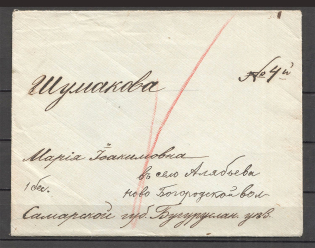 Шумакова
№ 4й
Марія Іоакимовна
въ село Алябьева
1 бег. Ново Богородской вол
Самарской губ. Бугурулан. уѣз.